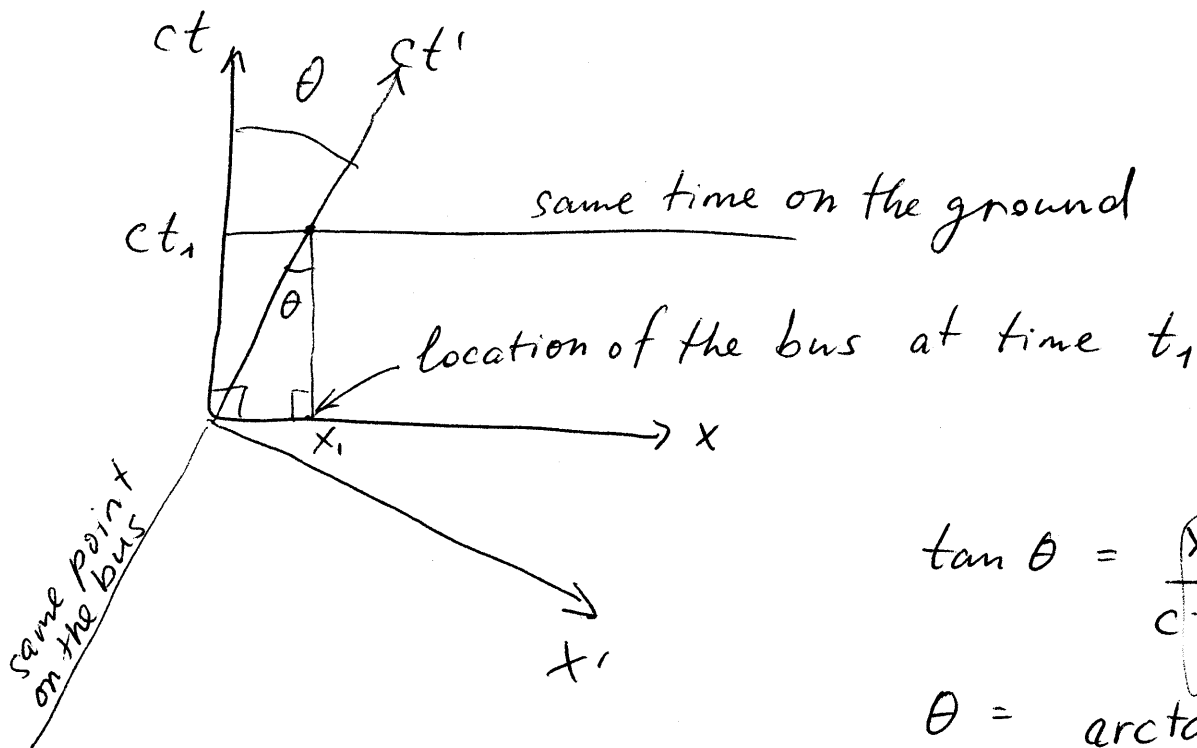 ct
ct'
θ
same time on the ground
ct₁
θ
location of the bus at time t₁
x₁
x
same point
on the bus
x'
tan θ = x
c
θ = arcta